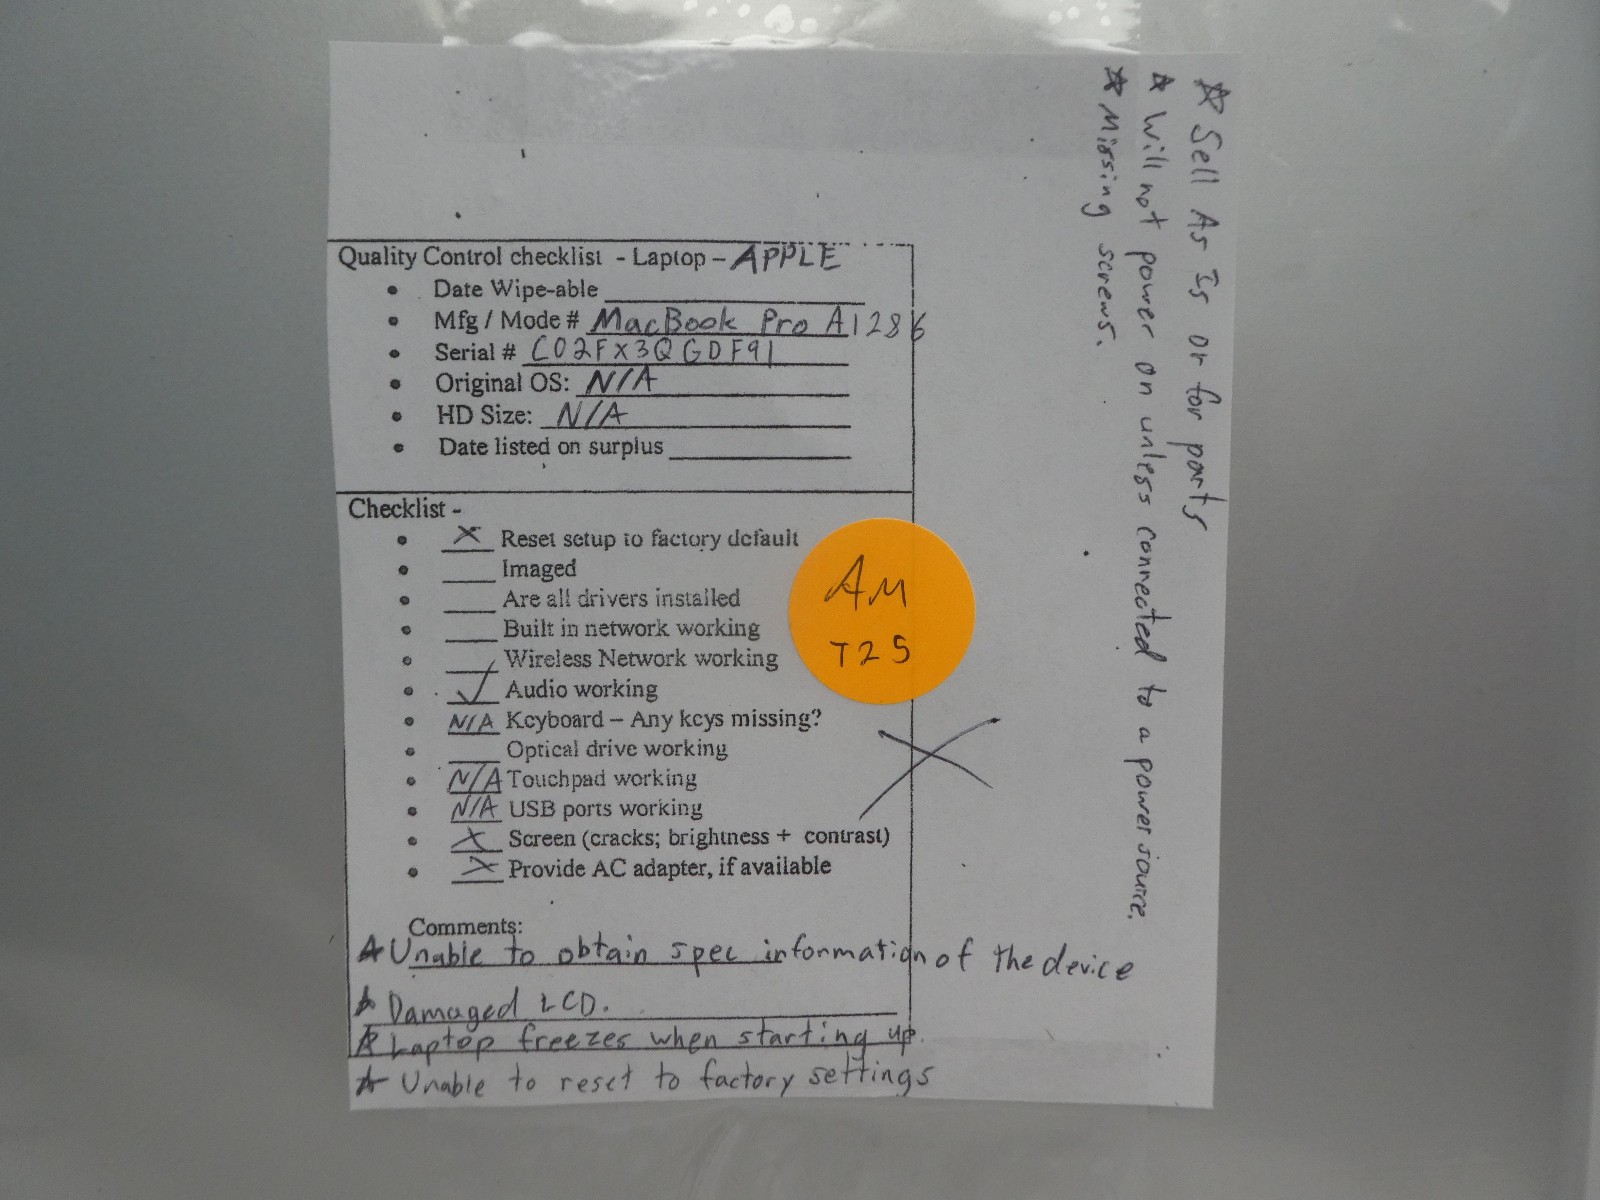 Quality Control checklist - Laptop – APPLE
Date Wipe-able
Mfg / Mode # MacBook Pro A1286
Serial # C02FX3QGDF91
Original OS: N/A
HD Size: N/A
Date listed on surplus
Checklist -
X Reset setup to factory default
Imaged
Are all drivers installed
Built in network working
Wireless Network working
✓ Audio working
N/A Keyboard – Any keys missing?
Optical drive working
N/A Touchpad working
N/A USB ports working
X Screen (cracks; brightness + contrast)
X Provide AC adapter, if available
Comments:
☆ Unable to obtain spec information of the device
☆ Damaged LCD.
☆ Laptop freezes when starting up.
☆ Unable to reset to factory settings
AM
T25
☆ Sell As Is or for parts
☆ Will not power on unless connected to a power source.
☆ Missing screws.